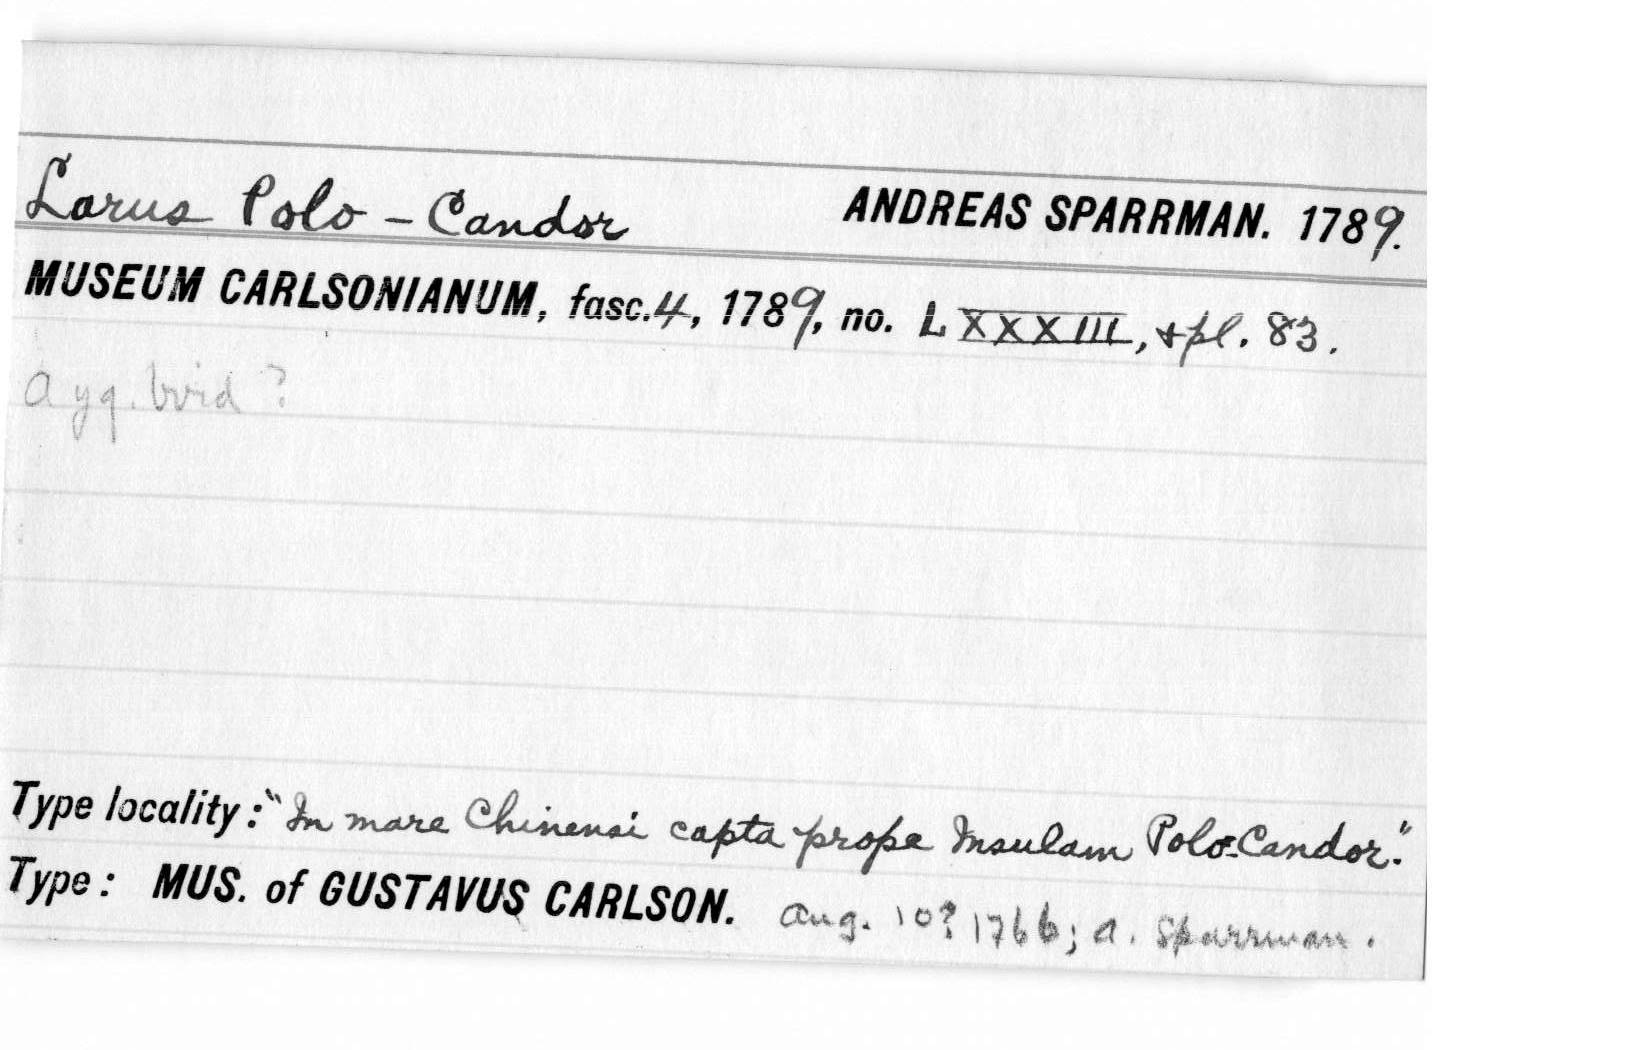 Larus Polo-Candor ANDREAS SPARRMAN. 1789.
MUSEUM CARLSONIANUM, fasc. 4, 1789, no. LXXXIII, + pl. 83.
A yg. bird?
Type locality: "In mare Chinensi capta prope Insulam Polo-Candor."
Type: MUS. of GUSTAVUS CARLSON. Aug. 10? 1766; A. Sparrman.